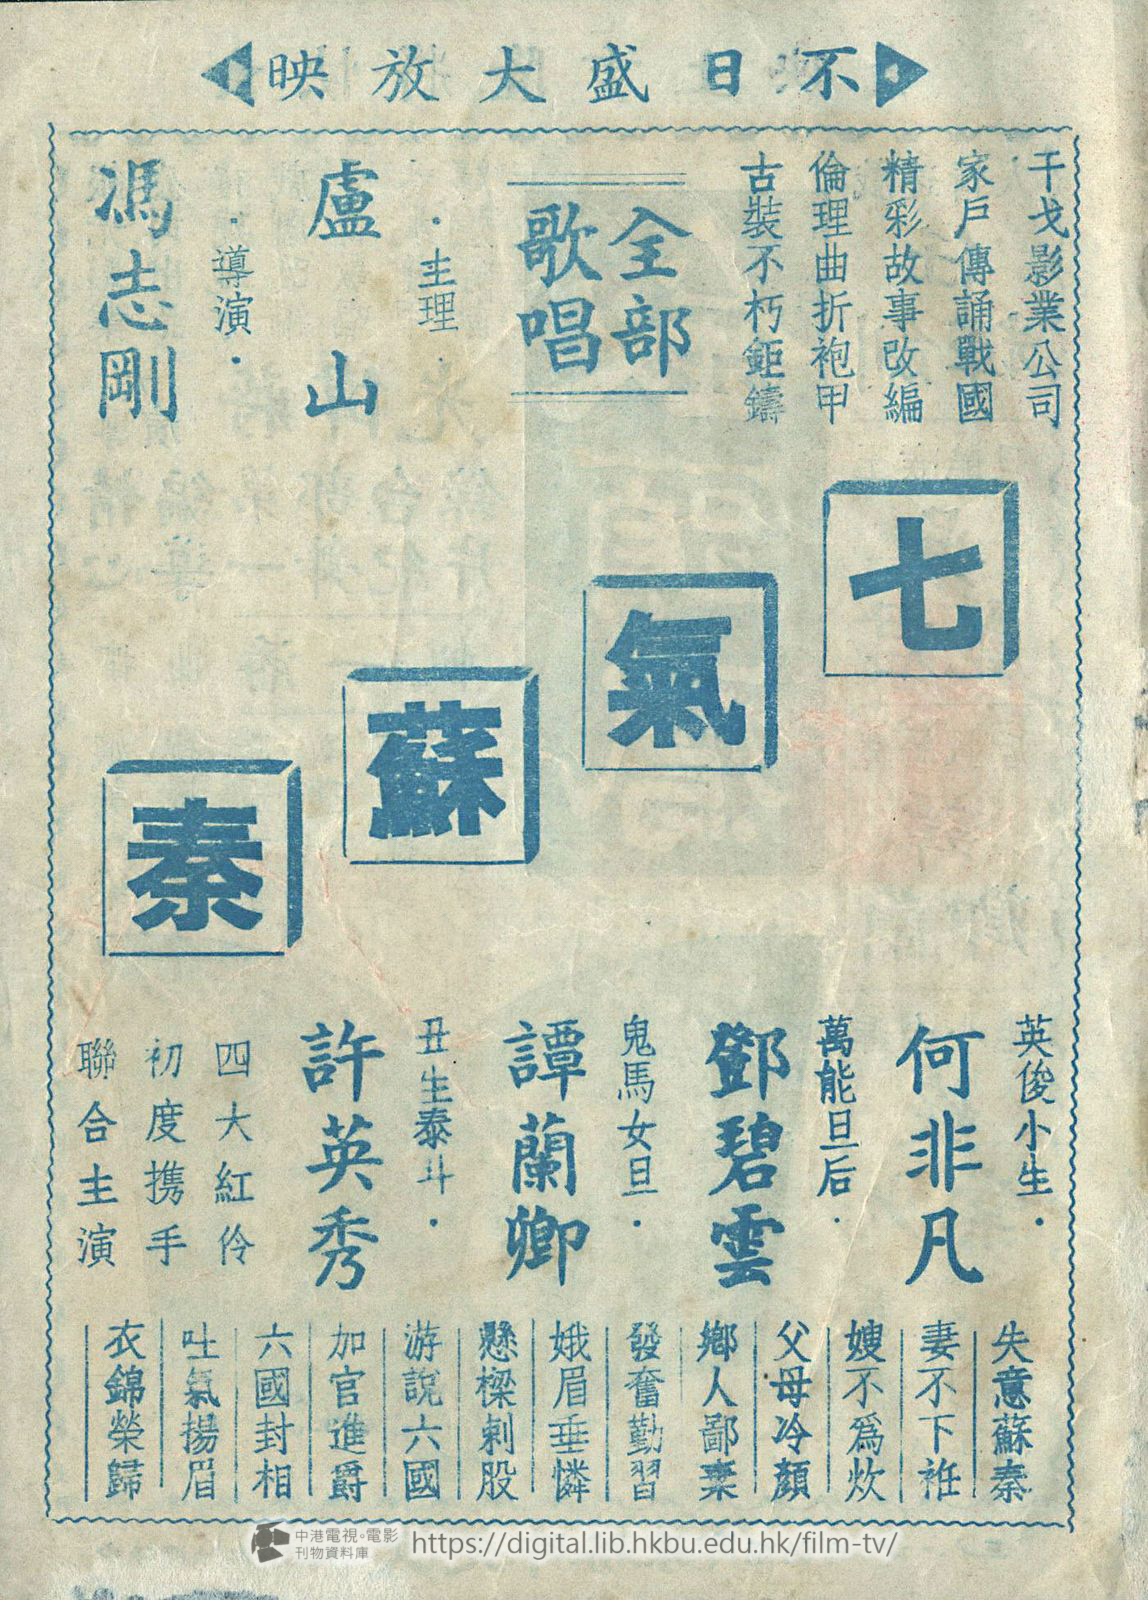 不日盛大放映
干戈影業公司
家戶傳誦戰國
精彩故事改編
倫理曲折袍甲
古裝不朽鉅鑄
全部
歌唱
·主理·
盧山
·導演·
馮志剛
七
氣
蘇
秦
英俊小生·
何非凡
萬能旦后·
鄧碧雲
鬼馬女旦·
譚蘭卿
丑生泰斗·
許英秀
四大紅伶
初度携手
聯合主演
失意蘇秦
妻不下袵
嫂不爲炊
父母冷顏
鄉人鄙棄
發奮勤習
娥眉垂憐
懸樑刺股
游說六國
加官進爵
六國封相
吐氣揚眉
衣錦榮歸
中港電視·電影
刊物資料庫
https://digital.lib.hkbu.edu.hk/film-tv/